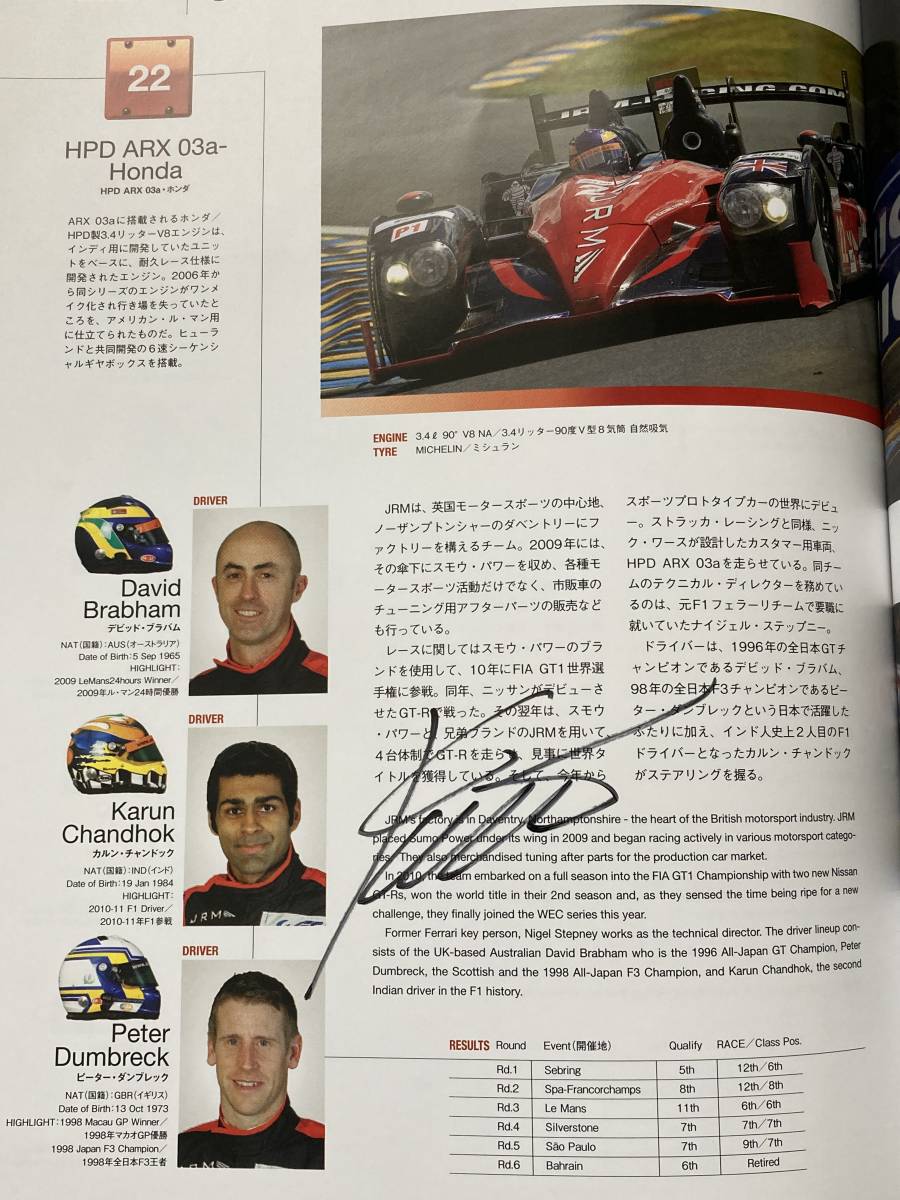 22
HPD ARX 03a-
Honda
HPD ARX 03a・ホンダ
ARX 03aに搭載されるホンダ／
HPD製3.4リッターV8エンジンは、
インディ用に開発していたユニッ
トをベースに、耐久レース仕様に
開発されたエンジン。2006年か
ら同シリーズのエンジンがワンメ
イク化され行き場を失っていたと
ころを、アメリカン・ル・マン用
に仕立てられたものだ。ヒューラ
ンドと共同開発の6速シーケンシ
ャルギヤボックスを搭載。
P1
JRM
ENGINE 3.4ℓ 90° V8 NA／3.4リッター90度V型8気筒 自然吸気
TYRE MICHELIN／ミシュラン
DRIVER
David
Brabham
デビッド・ブラバム
NAT（国籍）：AUS（オーストラリア）
Date of Birth：5 Sep 1965
HIGHLIGHT：
2009 LeMans24hours Winner／
2009年ル・マン24時間優勝
DRIVER
Karun
Chandhok
カルン・チャンドック
NAT（国籍）：IND（インド）
Date of Birth：19 Jan 1984
HIGHLIGHT：
2010-11 F1 Driver／
2010-11年F1参戦
JRM
DRIVER
Peter
Dumbreck
ピーター・ダンブレック
NAT（国籍）：GBR（イギリス）
Date of Birth：13 Oct 1973
HIGHLIGHT：1998 Macau GP Winner／
1998年マカオGP優勝
1998 Japan F3 Champion／
1998年全日本F3王者
JRM
JRMは、英国モータースポーツの中心地、
ノーザンプトンシャーのダベントリーにフ
ァクトリーを構えるチーム。2009年には、
その傘下にスモウ・パワーを収め、各種モ
ータースポーツ活動だけでなく、市販車の
チューニング用アフターパーツの販売など
も行っている。
レースに関してはスモウ・パワーのブラ
ンドを使用して、10年にFIA GT1世界選
手権に参戦。同年、ニッサンがデビューさ
せたGT-Rで戦った。その翌年は、スモウ
・パワーと、兄弟ブランドのJRMを用いて、
4台体制でGT-Rを走らせ、見事に世界タ
イトルを獲得している。そして、今年から
スポーツプロトタイプカーの世界にデビュ
ー。ストラッカ・レーシングと同様、ニッ
ク・ワースが設計したカスタマー用車両、
HPD ARX 03aを走らせている。同チー
ムのテクニカル・ディレクターを務めてい
るのは、元F1フェラーリチームで要職に
就いていたナイジェル・ステップニー。
ドライバーは、1996年の全日本GTチ
ャンピオンであるデビッド・ブラバム、
98年の全日本F3チャンピオンであるピー
ター・ダンブレックという日本で活躍した
ふたりに加え、インド人史上2人目のF1
ドライバーとなったカルン・チャンドック
がステアリングを握る。
JRM's factory is in Daventry, Northamptonshire - the heart of the British motorsport industry. JRM
placed Sumo Power under its wing in 2009 and began racing actively in various motorsport catego-
ries. They also merchandised tuning after parts for the production car market.
In 2010, the team embarked on a full season into the FIA GT1 Championship with two new Nissan
GT-Rs, won the world title in their 2nd season and, as they sensed the time being ripe for a new
challenge, they finally joined the WEC series this year.
Former Ferrari key person, Nigel Stepney works as the technical director. The driver lineup con-
sists of the UK-based Australian David Brabham who is the 1996 All-Japan GT Champion, Peter
Dumbreck, the Scottish and the 1998 All-Japan F3 Champion, and Karun Chandhok, the second
Indian driver in the F1 history.
RESULTS Round Event（開催地） Qualify RACE／Class Pos.
Rd.1 Sebring 5th 12th／6th
Rd.2 Spa-Francorchamps 8th 12th／8th
Rd.3 Le Mans 11th 6th／6th
Rd.4 Silverstone 7th 7th／7th
Rd.5 São Paulo 7th 9th／7th
Rd.6 Bahrain 6th Retired